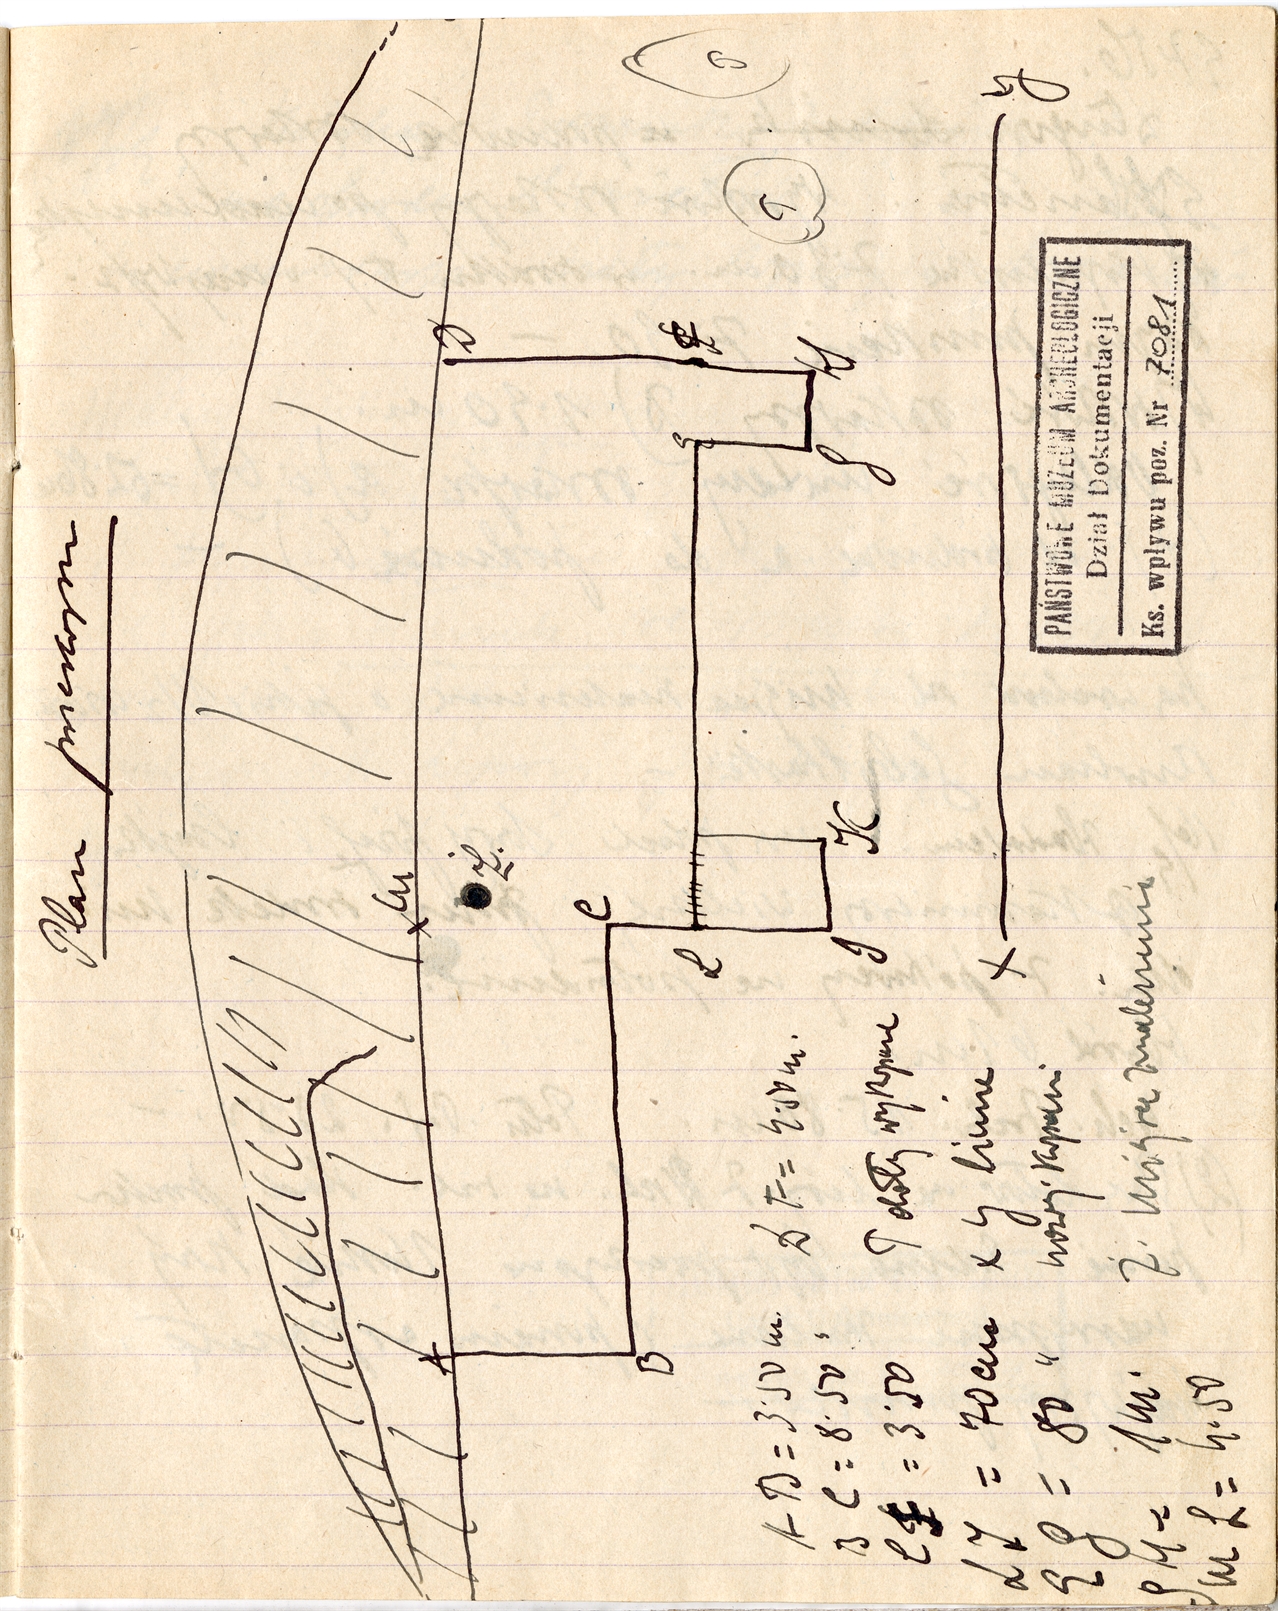 Plan przekopu
M
Ż.
A
B
C
D
L
J
K
G
H
T
T
x
y
A B = 3·50 m.
B C = 8·50 "
= 3·50
L J = 70 cm
80 "
G H = 1 m.
M L = 4·50
= 4·50 m.
T doły wykopane
x y linia
nowej kopani
Ż. miejsce znalezienia
PAŃSTWOWE MUZEUM ARCHEOLOGICZNE
Dział Dokumentacji
Ks. wpływu poz. Nr 7081